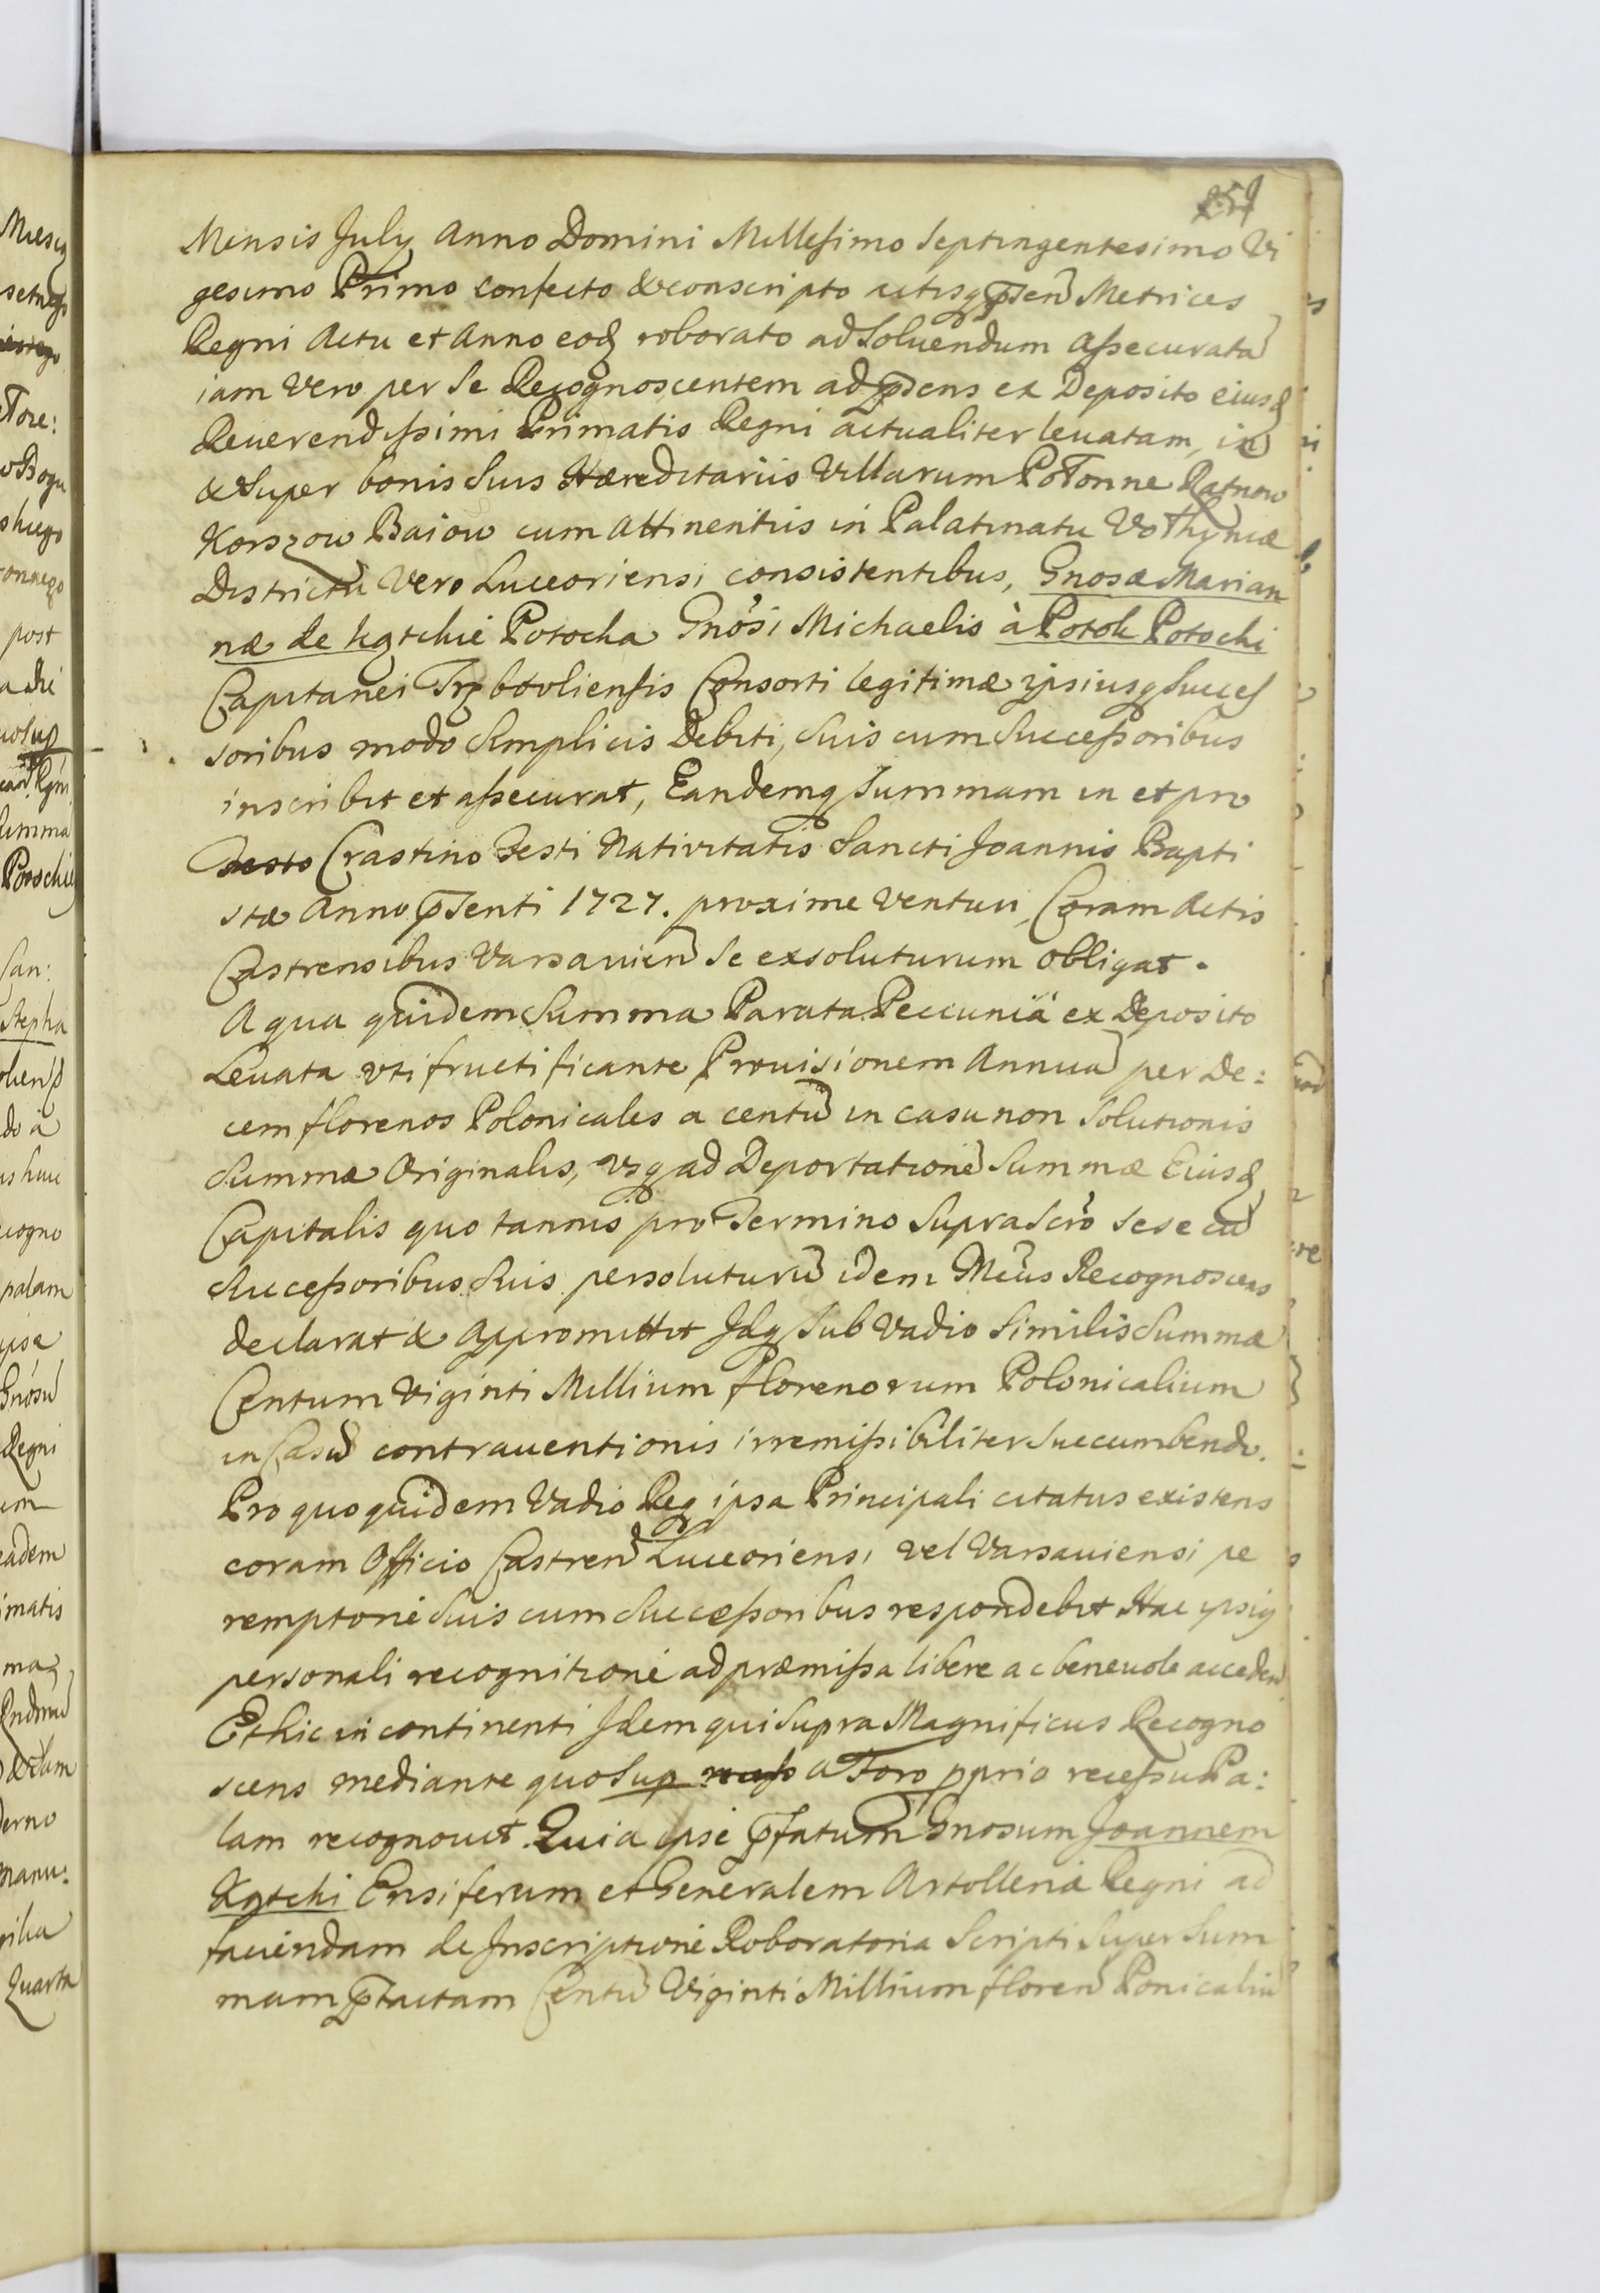 251
Mensis July Anno Domini Millesimo Septingentesimo Vi
gesimo Primo confecto & conscripto actisq p̄sen Metrices
Regni Actu et Anno eodq roborato ad Soluendum Assecurata
iam Vero per Se Recognoscentem ad p̄sens ex Deposito eiusdq
Reuerendissimi Primatis Regni actualiter leuatam, in
& Super bonis Suis Hæreditariis Villarum Połonne Ratnow
Korszow Baiow cum Attinentiis in Palatinatu Wołhyniæ
Districtu Vero Luceoriensi consistentibus, Gnosæ Marian
næ de Kątckie Potocka Gnosi Michaelis à Potok Potocki
Capitanei Trębowliensis Consorti legitimæ ipsiusq Succes
soribus modo Simplicis Debiti, Suis cum Successoribus
inscribit et assecurat, Eandemq Summam in et pro
Crastino Festi Nativitatis Sancti Joannis Bapti
stæ Anno p̄senti 1727. proxime Venturi, Coram Actis
Castrensibus Varsauien Se exsoluturum obligat.
A qua quidem Summa Parata Peccunia ex Deposito
Leuata uti fructificante Prouisionem Annua per De:
cem florenos Polonicales a centu in casu non Solutionis
Summæ Originalis, usq ad Deportatione Summæ Eiusdq
Capitalis quotannis pro Termino Suprascro sese cu
Successoribus Suis persoluturu idem Mcus Recognoscens
declarat & appromittit Idq Sub Vadio Similis Summæ
Centum Viginti Millium florenorum Polonicalium
in Casu contrauentionis irremissibiliter Succumbendo.
Pro quo quidem Vadio Req ipsa Principali citatus existens
coram Officio Castren Luceoriensi vel Varsauiensi pe
remptorie Suis cum Successoribus respondebit Hac ipsiq
personali recognitione ad præmissa libere ac beneuole acceden
Et hic in continenti Idem qui Supra Magnificus Recogno
scens mediante quo Sup a Foro pprio recessu Pa:
lam recognouit. Quia ipse p̄fatum Gnosum Joannem
Kątcki Ensiferum et Generalem Artolleriæ Regni ad
faciendam de Inscriptione Roboratoria Scripti Super Sum
mam p̄tactam Centu Viginti Millium floren Ponicaliu